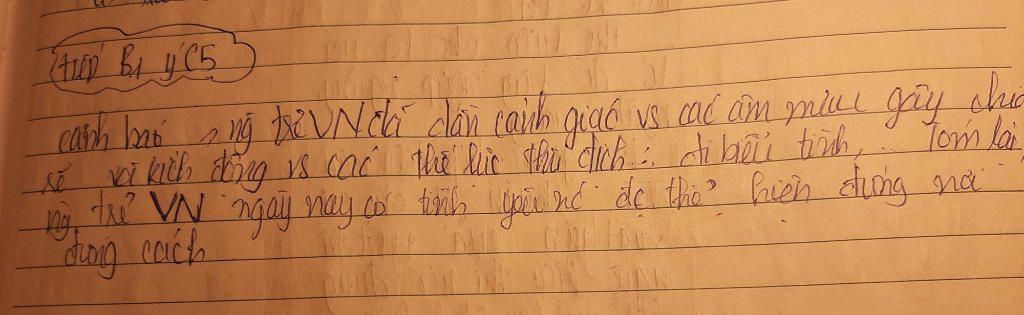 tiếp B1 ý C5
cảnh báo , ng trẻ VN đã dần cảnh giác vs các âm mưu gây chia
rẽ và kích động vs các thế lực thù địch : đi biểu tình, .. Tóm lại,
ng trẻ VN ngày nay có tình yêu nc đc thể hiện đúng nơi
đúng cách